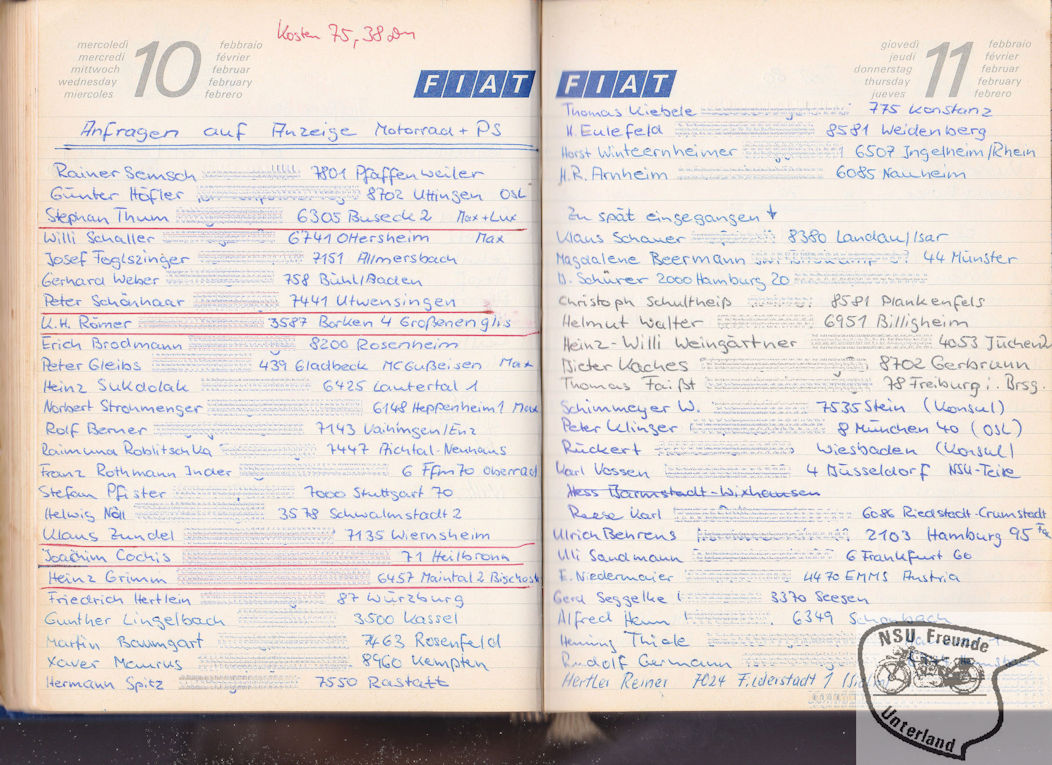 Kosten 75,38 Dm
mercoledì
mercredi
mittwoch
wednesday
miercoles
10
febbraio
février
februar
february
febrero
FIAT
Anfragen auf Anzeige Motorrad + PS
Rainer Semsch 7801 Pfaffenweiler
Günter Höfler 8702 Uttingen OSL
Stephan Thum 6305 Buseck 2 Max+Lux
Willi Schaller 6741 Ottersheim Max
Josef Foglszinger 7151 Allmersbach
Gerhard Weber 758 Bühl/Baden
Peter Schönhaar 7441 Utwensingen
K.H. Römer 3587 Borken 4 Großenenglis
Erich Brodmann 8200 Rosenheim
Peter Gleibs 439 Gladbeck MC Gußeisen Max
Heinz Sukdolak 6425 Lautertal 1
Norbert Strohmenger 6148 Heppenheim 1 Max
Rolf Berner 7143 Vaihingen/Enz
Raimund Roblitschka 7447 Aichtal-Neuhaus
Franz Rothmann Inder 6 Ffm 70 Oberrad
Stefan Pfister 7000 Stuttgart 70
Helwig Nöll 3578 Schwalmstadt 2
Klaus Zundel 7135 Wiernsheim
Joachim Cochis 71 Heilbronn
Heinz Grimm 6457 Maintal 2 Bischofsh
Friedrich Hertlein 87 Würzburg
Gunther Lingelbach 3500 Kassel
Martin Baumgart 7463 Rosenfeld
Xaver 8960 Kempten
Hermann Spitz 7550 Rastatt
giovedì
jeudi
donnerstag
thursday
jueves
11
febbraio
février
februar
february
febrero
FIAT
Thomas Kiebele 775 Konstanz
H. Eulefeld 8581 Weidenberg
Horst Winteernheimer 6507 Ingelheim/Rhein
H.R. Arnheim 6085 Nauheim
Zu spät eingegangen ↓
Klaus Schauer 8380 Landau/Isar
Magdalene Beermann 44 Münster
D. Schürer 2000 Hamburg 20
Christoph Schultheiß 8581 Plankenfels
Helmut Walter 6951 Billigheim
Heinz-Willi Weingärtner 4053 Jüchen 2
Dieter Kaches 8702 Gerbrunn
Thomas Faißt 78 Freiburg i. Brsg.
Schimmeyer W. 7535 Stein (Konsul)
Peter Klinger 8 München 40 (OSL)
Rückert Wiesbaden (Konsul)
Karl Vossen 4 Düsseldorf NSU-Teile
Hess Darmstadt-Wixhausen
Reese Karl 6086 Riedstadt-Crumstadt
Ulrich Behrens 2103 Hamburg 95
Uli Sandmann 6 Frankfurt 60
E. Niedermaier 4470 EMMS Austria
Gerd Seggelke 3370 Seesen
Alfred Henn 6349 Schönbach
Henning Thiele
Rudolf Germann
Hertler Reiner 7024 Filderstadt 1
NSU Freunde
Unterland